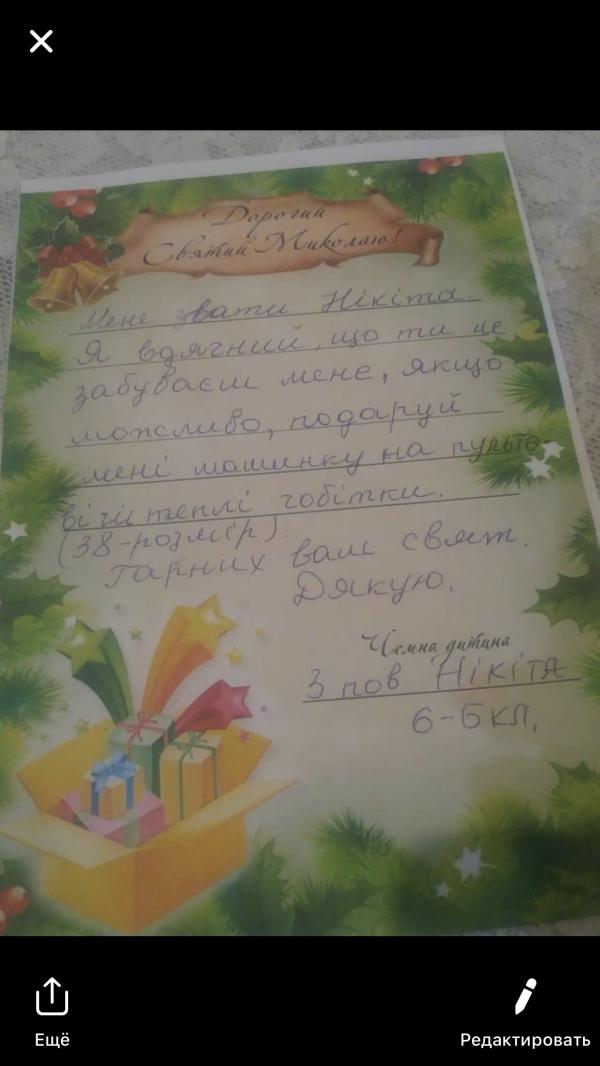 Дорогий
Святий Миколаю!
Мене звати Нікіта.
Я вдячний, що ти не
забуваєш мене, якщо
можливо, подаруй
мені машинку на пульто
ві чи теплі чобітки.
(38-розмір).
Гарних вам свят.
Дякую.
Чемна дитина
З пов Нікіта
6-Б кл.
Ещё
Редактировать